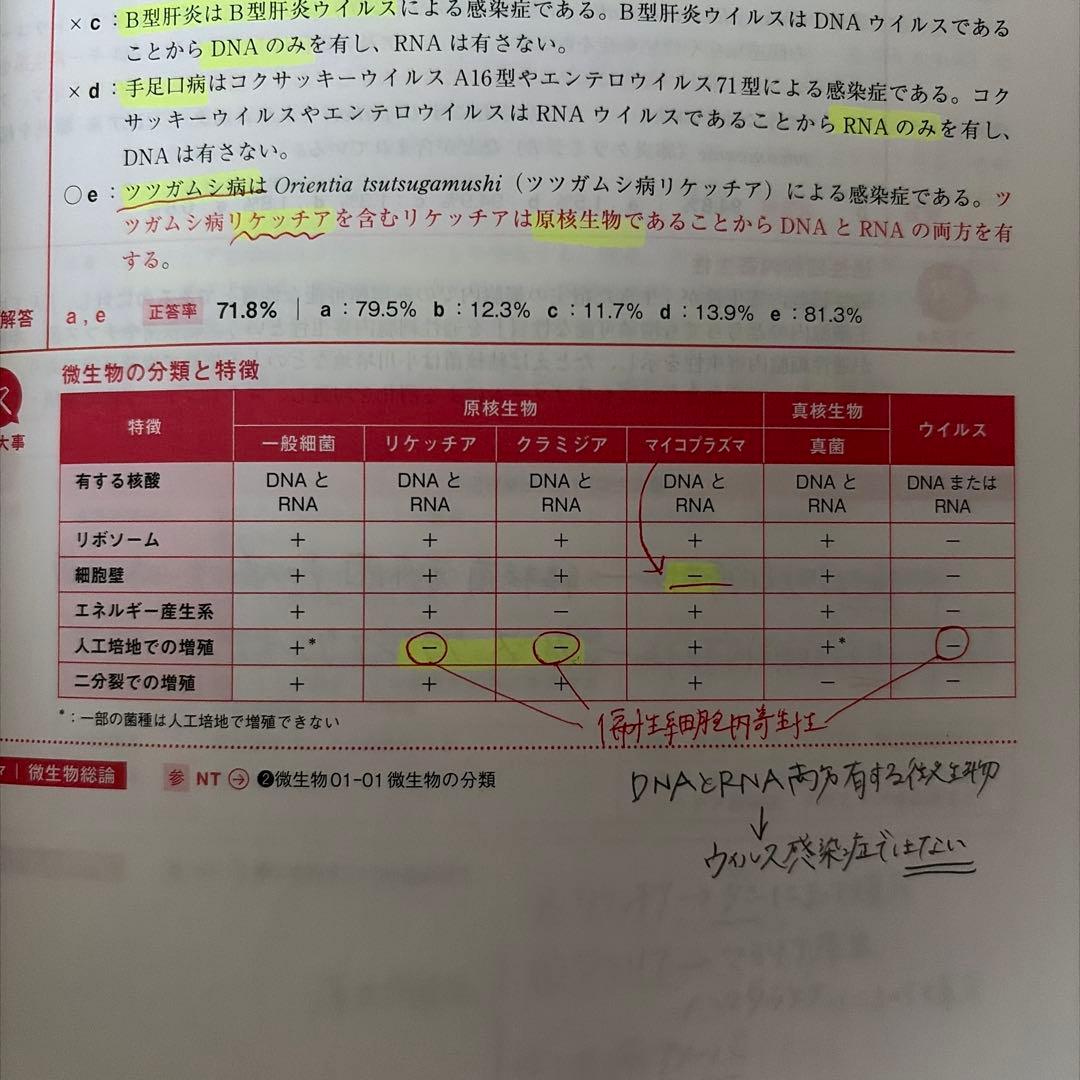 ×c:B型肝炎はB型肝炎ウイルスによる感染症である。B型肝炎ウイルスはDNAウイルスである
ことからDNAのみを有し、RNAは有さない。
×d:手足口病はコクサッキーウイルスA16型やエンテロウイルス71型による感染症である。コク
サッキーウイルスやエンテロウイルスはRNAウイルスであることからRNAのみを有し、
DNAは有さない。
○e:ツツガムシ病はOrientia tsutsugamushi(ツツガムシ病リケッチア)による感染症である。ツ
ツガムシ病リケッチアを含むリケッチアは原核生物であることからDNAとRNAの両方を有
する。
解答 a, e 正答率 71.8% | a:79.5% b:12.3% c:11.7% d:13.9% e:81.3%
微生物の分類と特徴
大事
特徴 原核生物 真核生物 ウイルス
一般細菌 リケッチア クラミジア マイコプラズマ 真菌
有する核酸 DNAとRNA DNAとRNA DNAとRNA DNAとRNA DNAとRNA DNAまたはRNA
リボソーム + + + + + −
細胞壁 + + + − + −
エネルギー産生系 + + − + + −
人工培地での増殖 +* − − + +* −
二分裂での増殖 + + + + − −
*:一部の菌種は人工培地で増殖できない
偏性細胞内寄生性
| 微生物総論 参 NT → ❷微生物01-01 微生物の分類
DNAとRNA両方有する微生物
↓
ウイルス感染症ではない